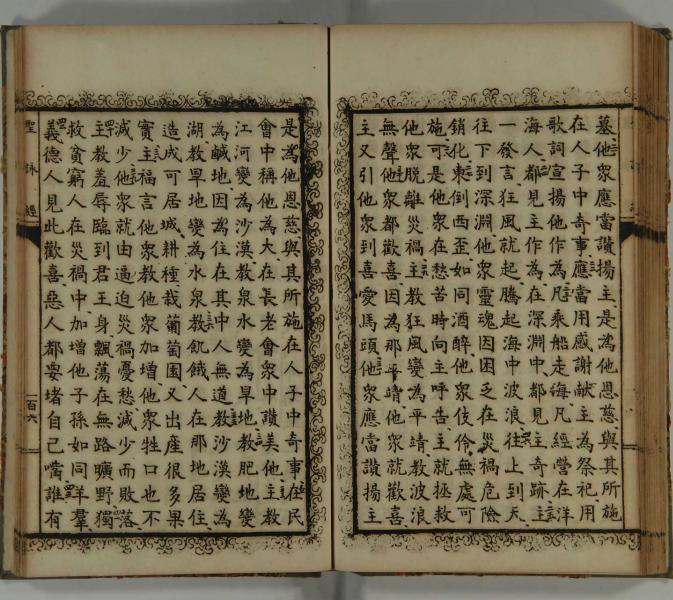 墓他眾應當讚揚主是為他恩慈與其所施
在人子中奇事應當用感謝献主為祭祀用
歌詞宣揚他作為凡乘船走海凡經營在洋
海人都見主作為在深淵中都見主奇跡主
一發言狂風就起騰起海中波浪往上到天
往下到深淵他眾靈魂因困乏在災禍危險
銷化東倒西歪如同酒醉他眾伎倆無處可
施可是他眾在愁苦時向主呼告主就拯救
他眾脫離災禍主教狂風變為平靖教波浪
無聲他眾都歡喜因為那平靖他眾就歡喜
主又引他眾到喜愛馬頭他眾應當讚揚主
是為他恩慈與其所施在人子中奇事在民
會中稱他為大在長老會眾中讚美他主教
江河變為沙漠教泉水變為旱地教肥地變
為鹹地因為住在其中人無道教沙漠變為
湖教旱地變為水泉教飢餓人在那地居住
造成可居城耕種栽葡萄園又出產很多果
實主福言他眾教他眾加增他眾牲口也不
減少他眾就由逼迫災禍憂愁減少而敗落
主教羞辱臨到君王身飄蕩在無路曠野獨
救貧窮人在災禍中加增他子孫如同羊羣
義德人見此歡喜惡人都要堵自己嘴誰有
聖詠經 一百六